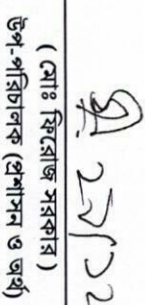 ২১/১২
( মোঃ ফিরোজ সরকার )
উপ-পরিচালক (প্রশাসন ও অর্থ)